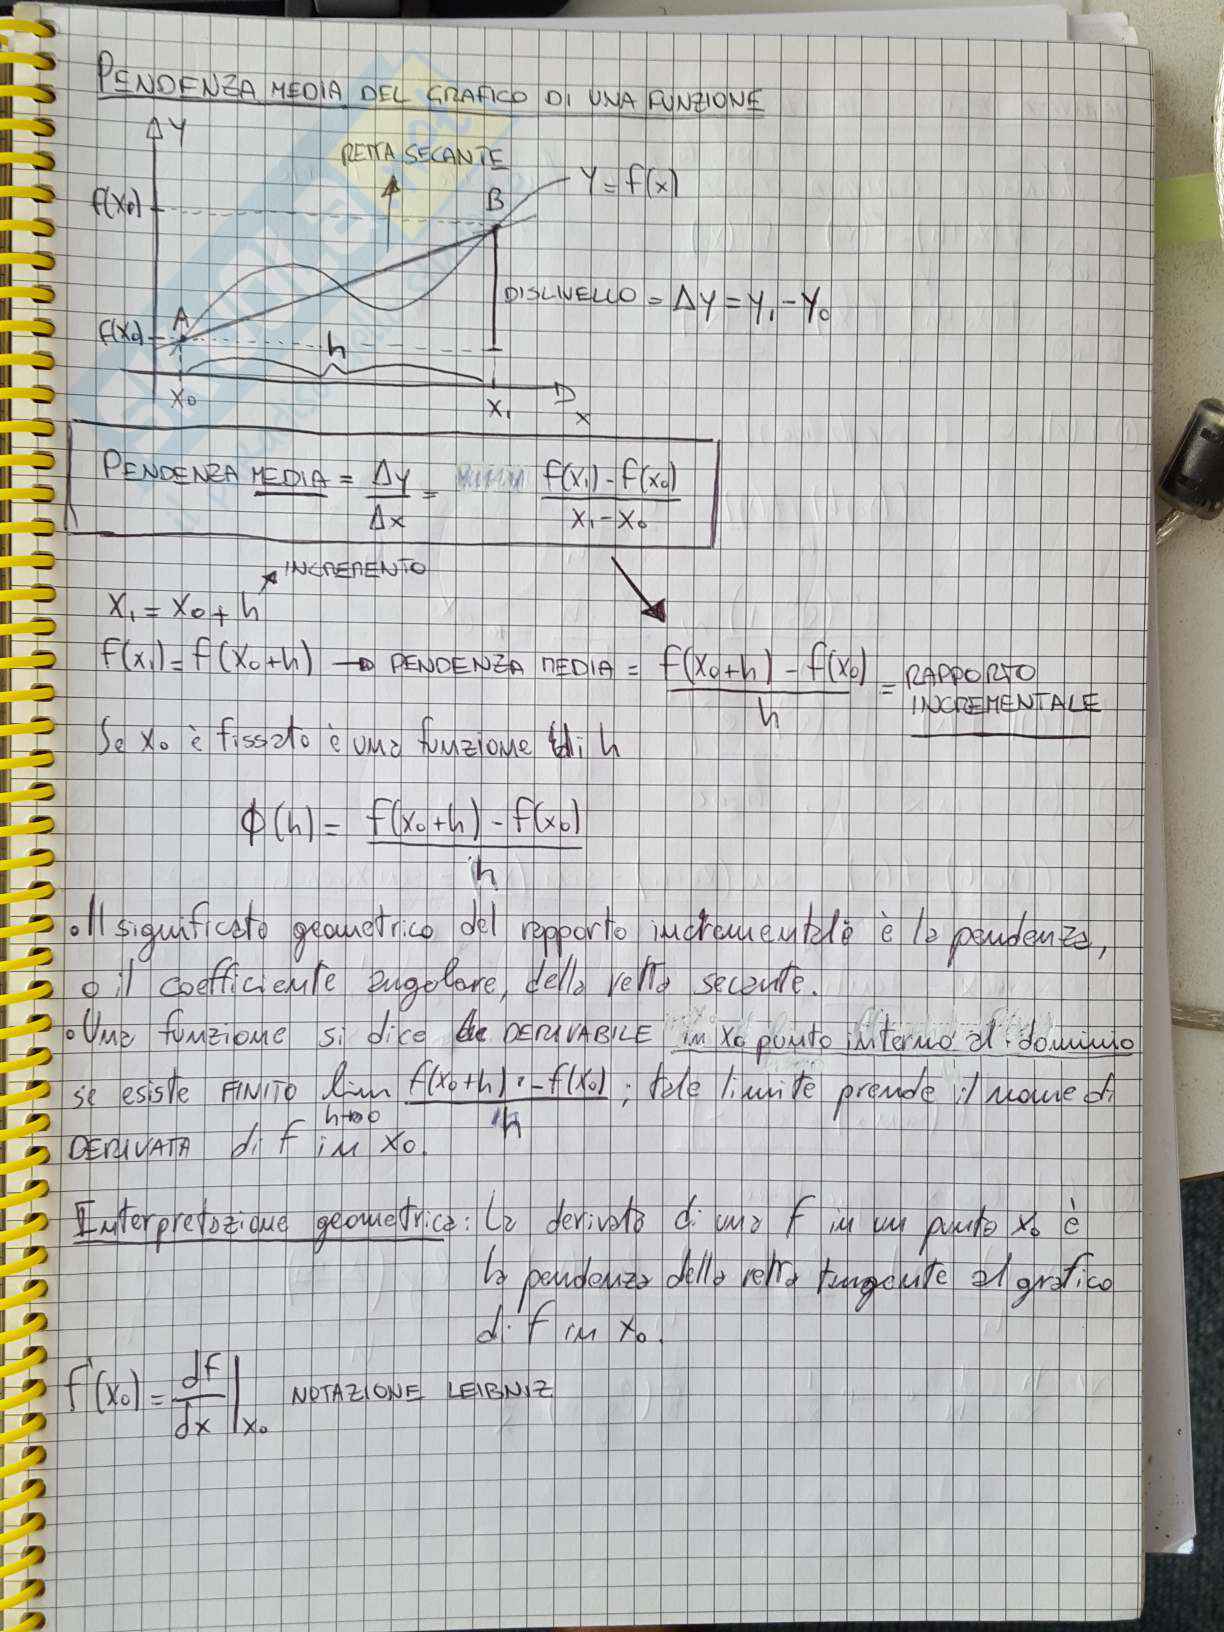 PENDENZA MEDIA DEL GRAFICO DI UNA FUNZIONE
Y
RETTA SECANTE
Y = f(x)
f(x₀)
B
DISLIVELLO = ΔY = Y₁ - Y₀
A
f(x₀)
h
X₀
X₁
x
PENDENZA MEDIA = Δy/Δx = (f(x₁) - f(x₀))/(x₁ - x₀)
INCREMENTO
X₁ = X₀ + h
f(x₁) = f(x₀+h) → PENDENZA MEDIA = (f(x₀+h) - f(x₀))/h = RAPPORTO INCREMENTALE
Se x₀ è fissato è una funzione di h
ϕ(h) = (f(x₀+h) - f(x₀))/h
• Il significato geometrico del rapporto incrementale è la pendenza,
o il coefficiente angolare, della retta secante.
• Una funzione si dice DERIVABILE in x₀ punto interno al dominio
se esiste FINITO lim h→0 (f(x₀+h) - f(x₀))/h ; tale limite prende il nome di
DERIVATA di f in x₀.
Interpretazione geometrica: La derivata di una f in un punto x₀ è
la pendenza della retta tangente al grafico
di f in x₀.
f'(x₀) = df/dx |x₀ NOTAZIONE LEIBNIZ